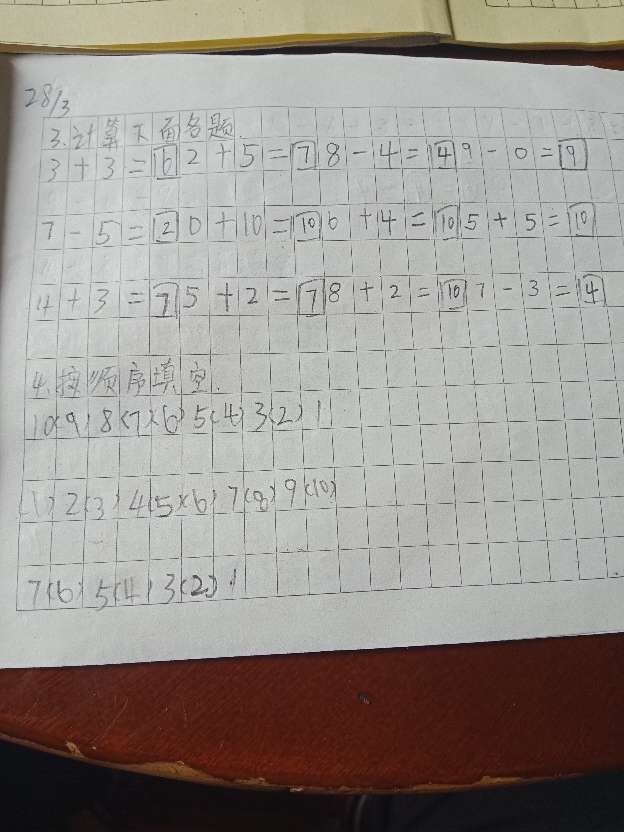 28/3
3.计算下面各题.
3+3=6 2+5=7 8-4=4 9-0=9
7-5=2 0+10=10 6+4=10 5+5=10
4+3=7 5+2=7 8+2=10 7-3=4
4.按顺序填空.
10(9)8(7)(6)5(4)3(2)1
(1)2(3)4(5)(6)7(8)9(10)
7(6)5(4)3(2)1